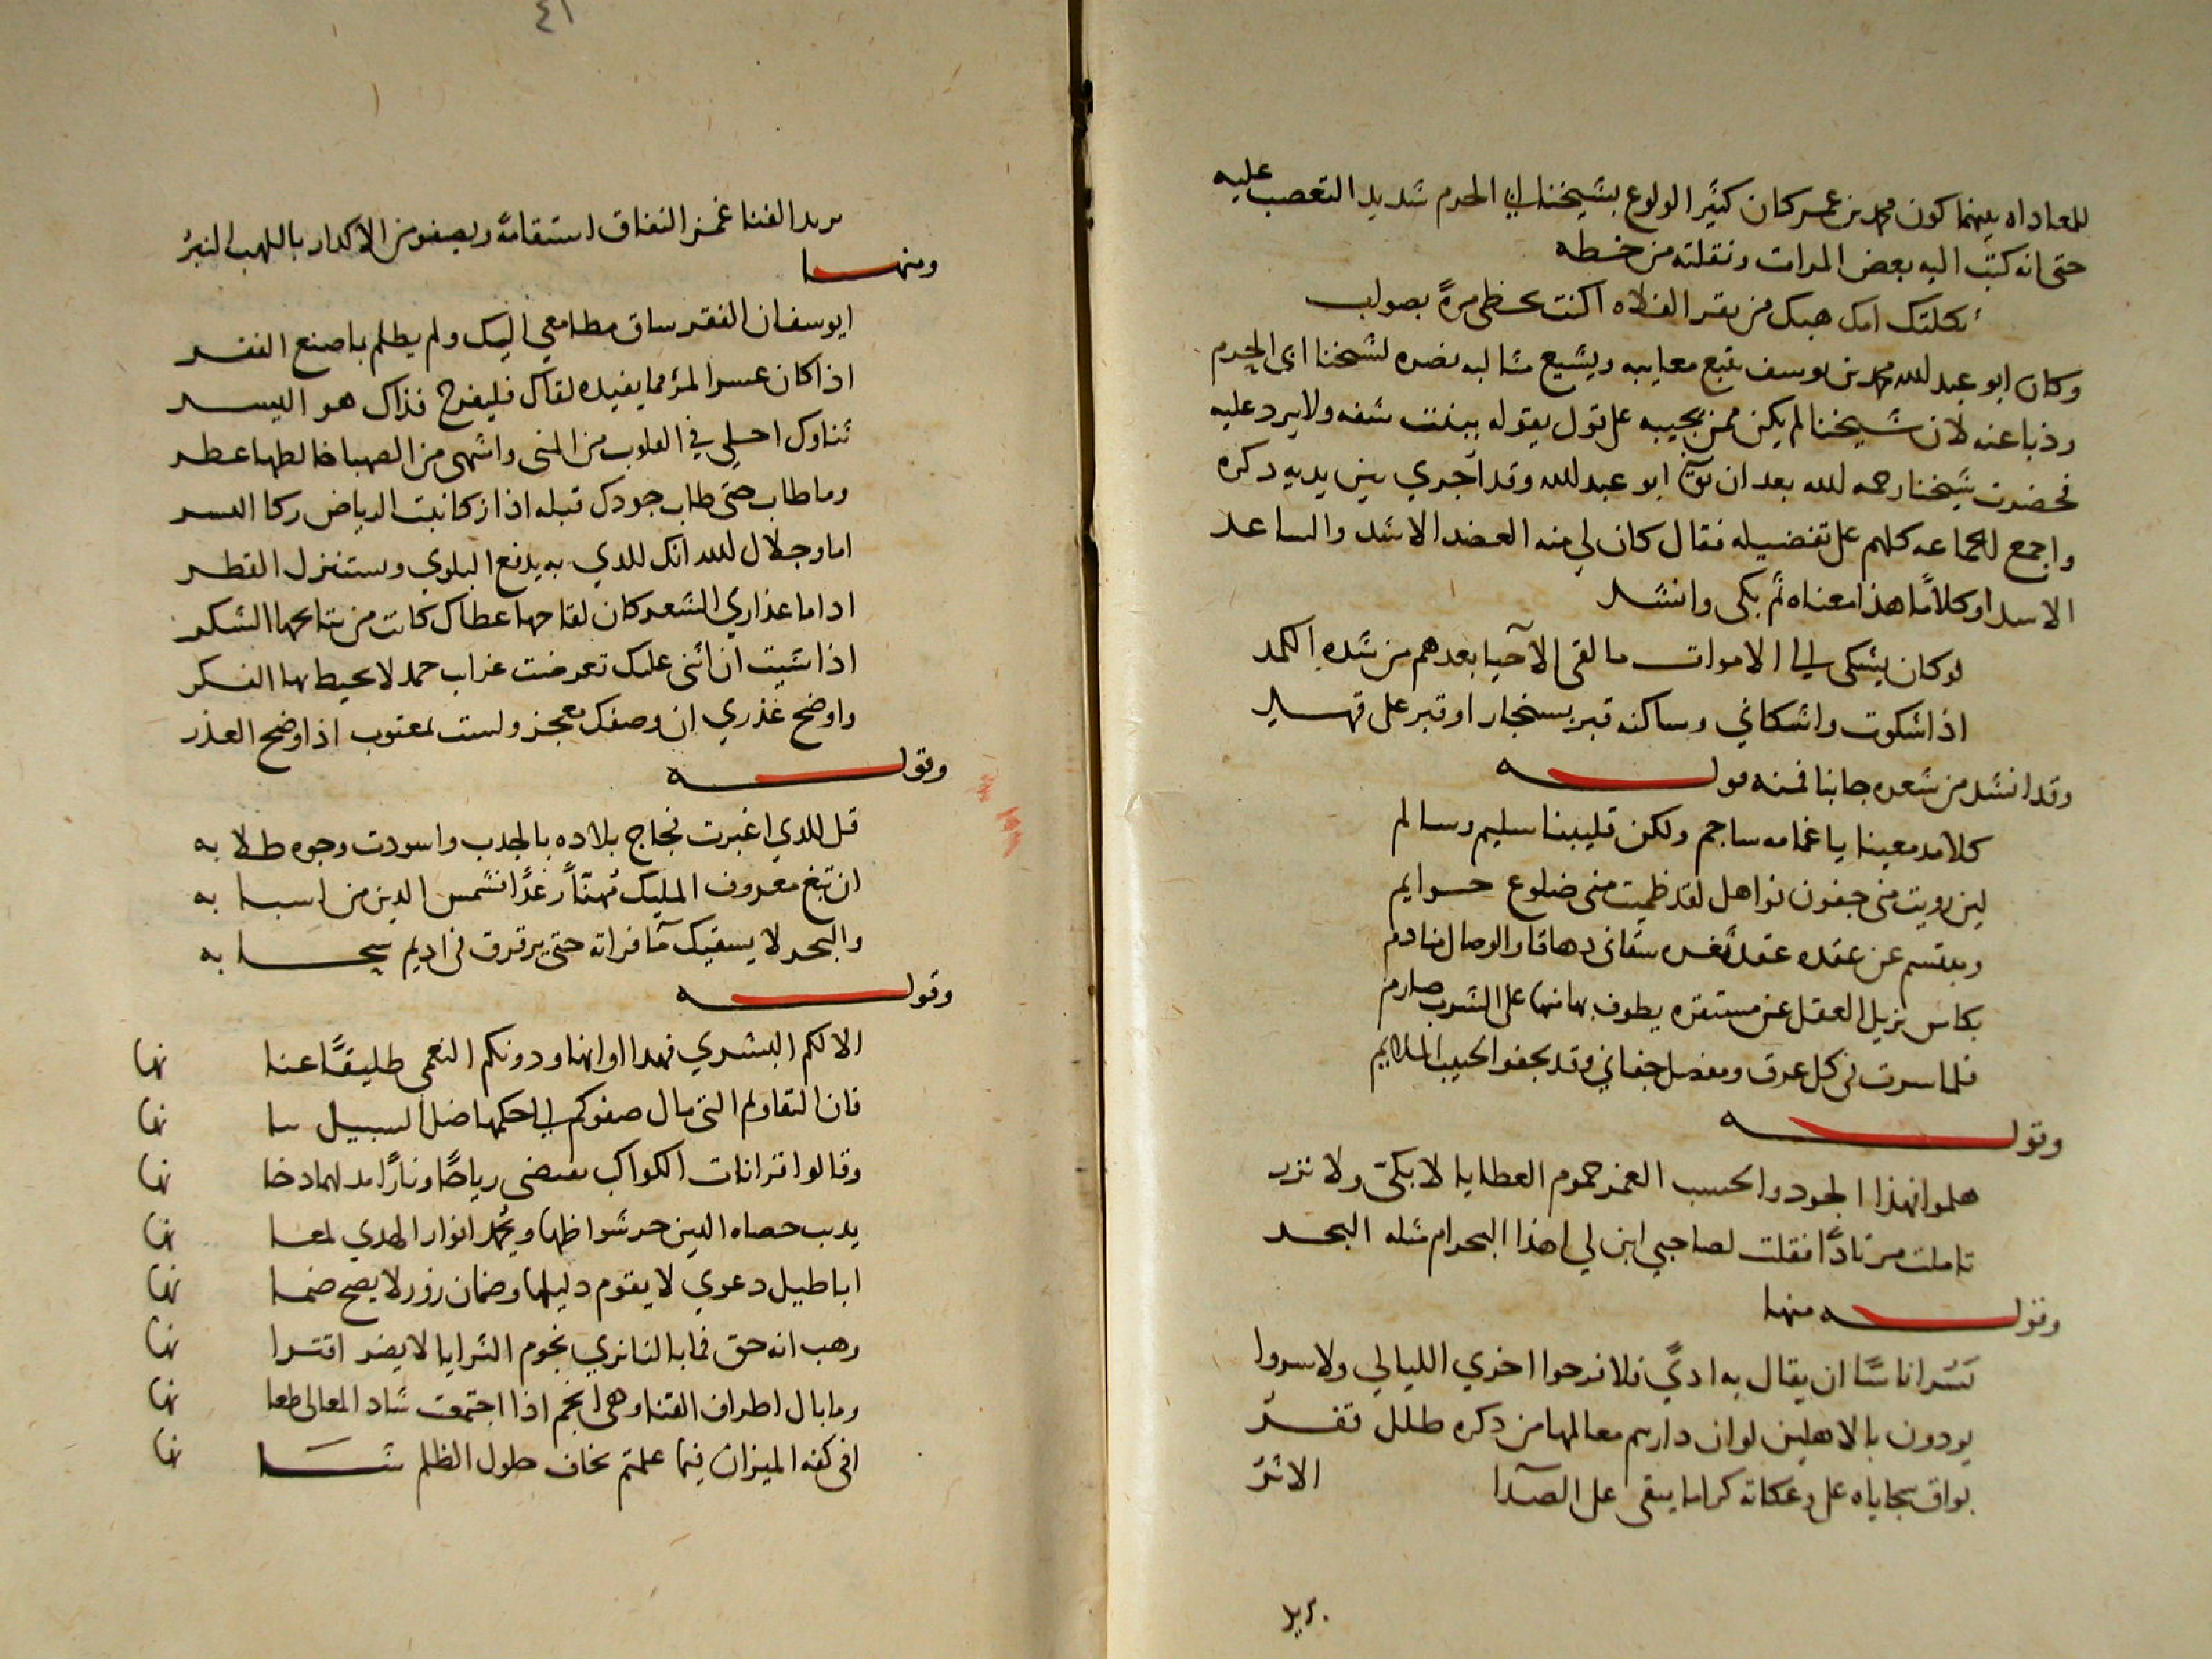 للمعاداه بينهما كون محمد بن عمر كان كثير الولوع بشيخنا ابي الحرم شديد التعصب عليه
حتى انه كتب اليه بعض المرات ونقلته من خطه
ثكلتك امك هبك من بقر الفلاه اكنت تخطى مرة بصواب
وكان ابو عبد الله محمد بن يوسف يتبع معايبه ويشيع مثالبه نصره لشيخنا ابى الحرم
وذبا عنه لان شيخنا لم يكن ممن يجيبه على قول يقوله ببنت شفه ولا يرد عليه
فحضرت شيخنا رحمه الله بعد ان توفى ابو عبد الله وقد اجري بين يديه ذكره
واجمع الجماعه كلهم على تفضيله فقال كان لي منه العضد الاشد والساعد
الاسد او كلاما هذا معناه ثم بكى وانشد
لو كان يشكى الى الاموات ما لقى الاحيا بعدهم من شده الكمد
اذا شكوت واشكاني وساكنه قبر بسنجار او قبر على
وقد انشد من شعره جانبا فمنه قوله
كلا مدمعينا يا غمامه ساجم ولكن قليبنا سليم وسالم
لين رويت منى جفون نواهل لقد ظميت منى ضلوع حوايم
ومبتسم عن عقده عقد ثغره سقانى دهاقا والوصال منادم
بكاس يزيل العقل عن مستقره يطوف بها منها على الشرب صارم
فلما سرت فى كل عرق ومفصل جفاني وقد يجفو الحبيب الملايم
وقوله
هلموا فهذا الجود والحسب الغمر جموم العطايا لا بكى ولا نزر
تاملت مرتادا فقلت لصاحبي ابن لي اهذا البحر ام مثله البحر
وقوله منها
يسر اناسا ان يقال به اذى فلا فرحوا اخرى الليالي ولا سروا
يودون بالاهلين لو ان دارهم معالمها من ذكره طلل قفر
بواق سجاياه على وعكاته كما ما يبقى على الصدا الاثر
يريد
٤١
يريد الفنا غمز الثقاف استقامة ويصفو من الاكدار باللهب التبر
ومنها
ايوسف ان الفقر ساق مطامعي اليك ولم يظلم بما صنع الفقر
اذا كان عسر المرء مما يفيده لقاك فليفرح فذاك هو اليسر
ثناوك احلي في القلوب من المنى واشهى من الصهبا خالطها عطر
وما طاب حتى طاب جودك قبله اذا زكا نبت الرياض زكا
اما وجلال الله انك للذي به يدفع البلوي ويستنزل القطر
اذا ما عذاري الشعر كان لقاحها عطاك كانت من نتايجها الشكر
اذا شيت ان اثنى عليك تعرضت غراب حمد لا يحيط بها الفكر
واوضح عذري ان وصفك معجز ولست بمعتوب اذا وضح العذر
وقوله
قل للذي اغبرت فجاج بلاده بالجدب واسودت وجوه طلابه
ان تبغ معروف المليك مهنأ رغدا فشمس الدين من اسبابه
والبحر لا يسقيك مآ فراته حتى يرقرق فى اديم سحابه
وقوله
الا لكم البشري فهذا اوانها ودونكم النعمى طليقا عنانها
فان التقاويم التى مال صفوكم الى حكمها ضل السبيل بيانها
وقالوا قرانات الكواكب تقتضى رياحا ونارا مدلهما دخانها
يدب حصاه الدين حر شواظها ويخمد انوار الهدي لمعانها
اباطيل دعوي لا يقوم دليلها وضمان زور لا يصح ضمانها
وهب انه حق فما بالنا نري نجوم الثرايا لا يضر اقترانها
وما بال اطراف القنا وهى انجم اذا اجتمعت شاد المعالى طعانها
افى كفه الميزان فيما علمتم تخاف حلول الظلم